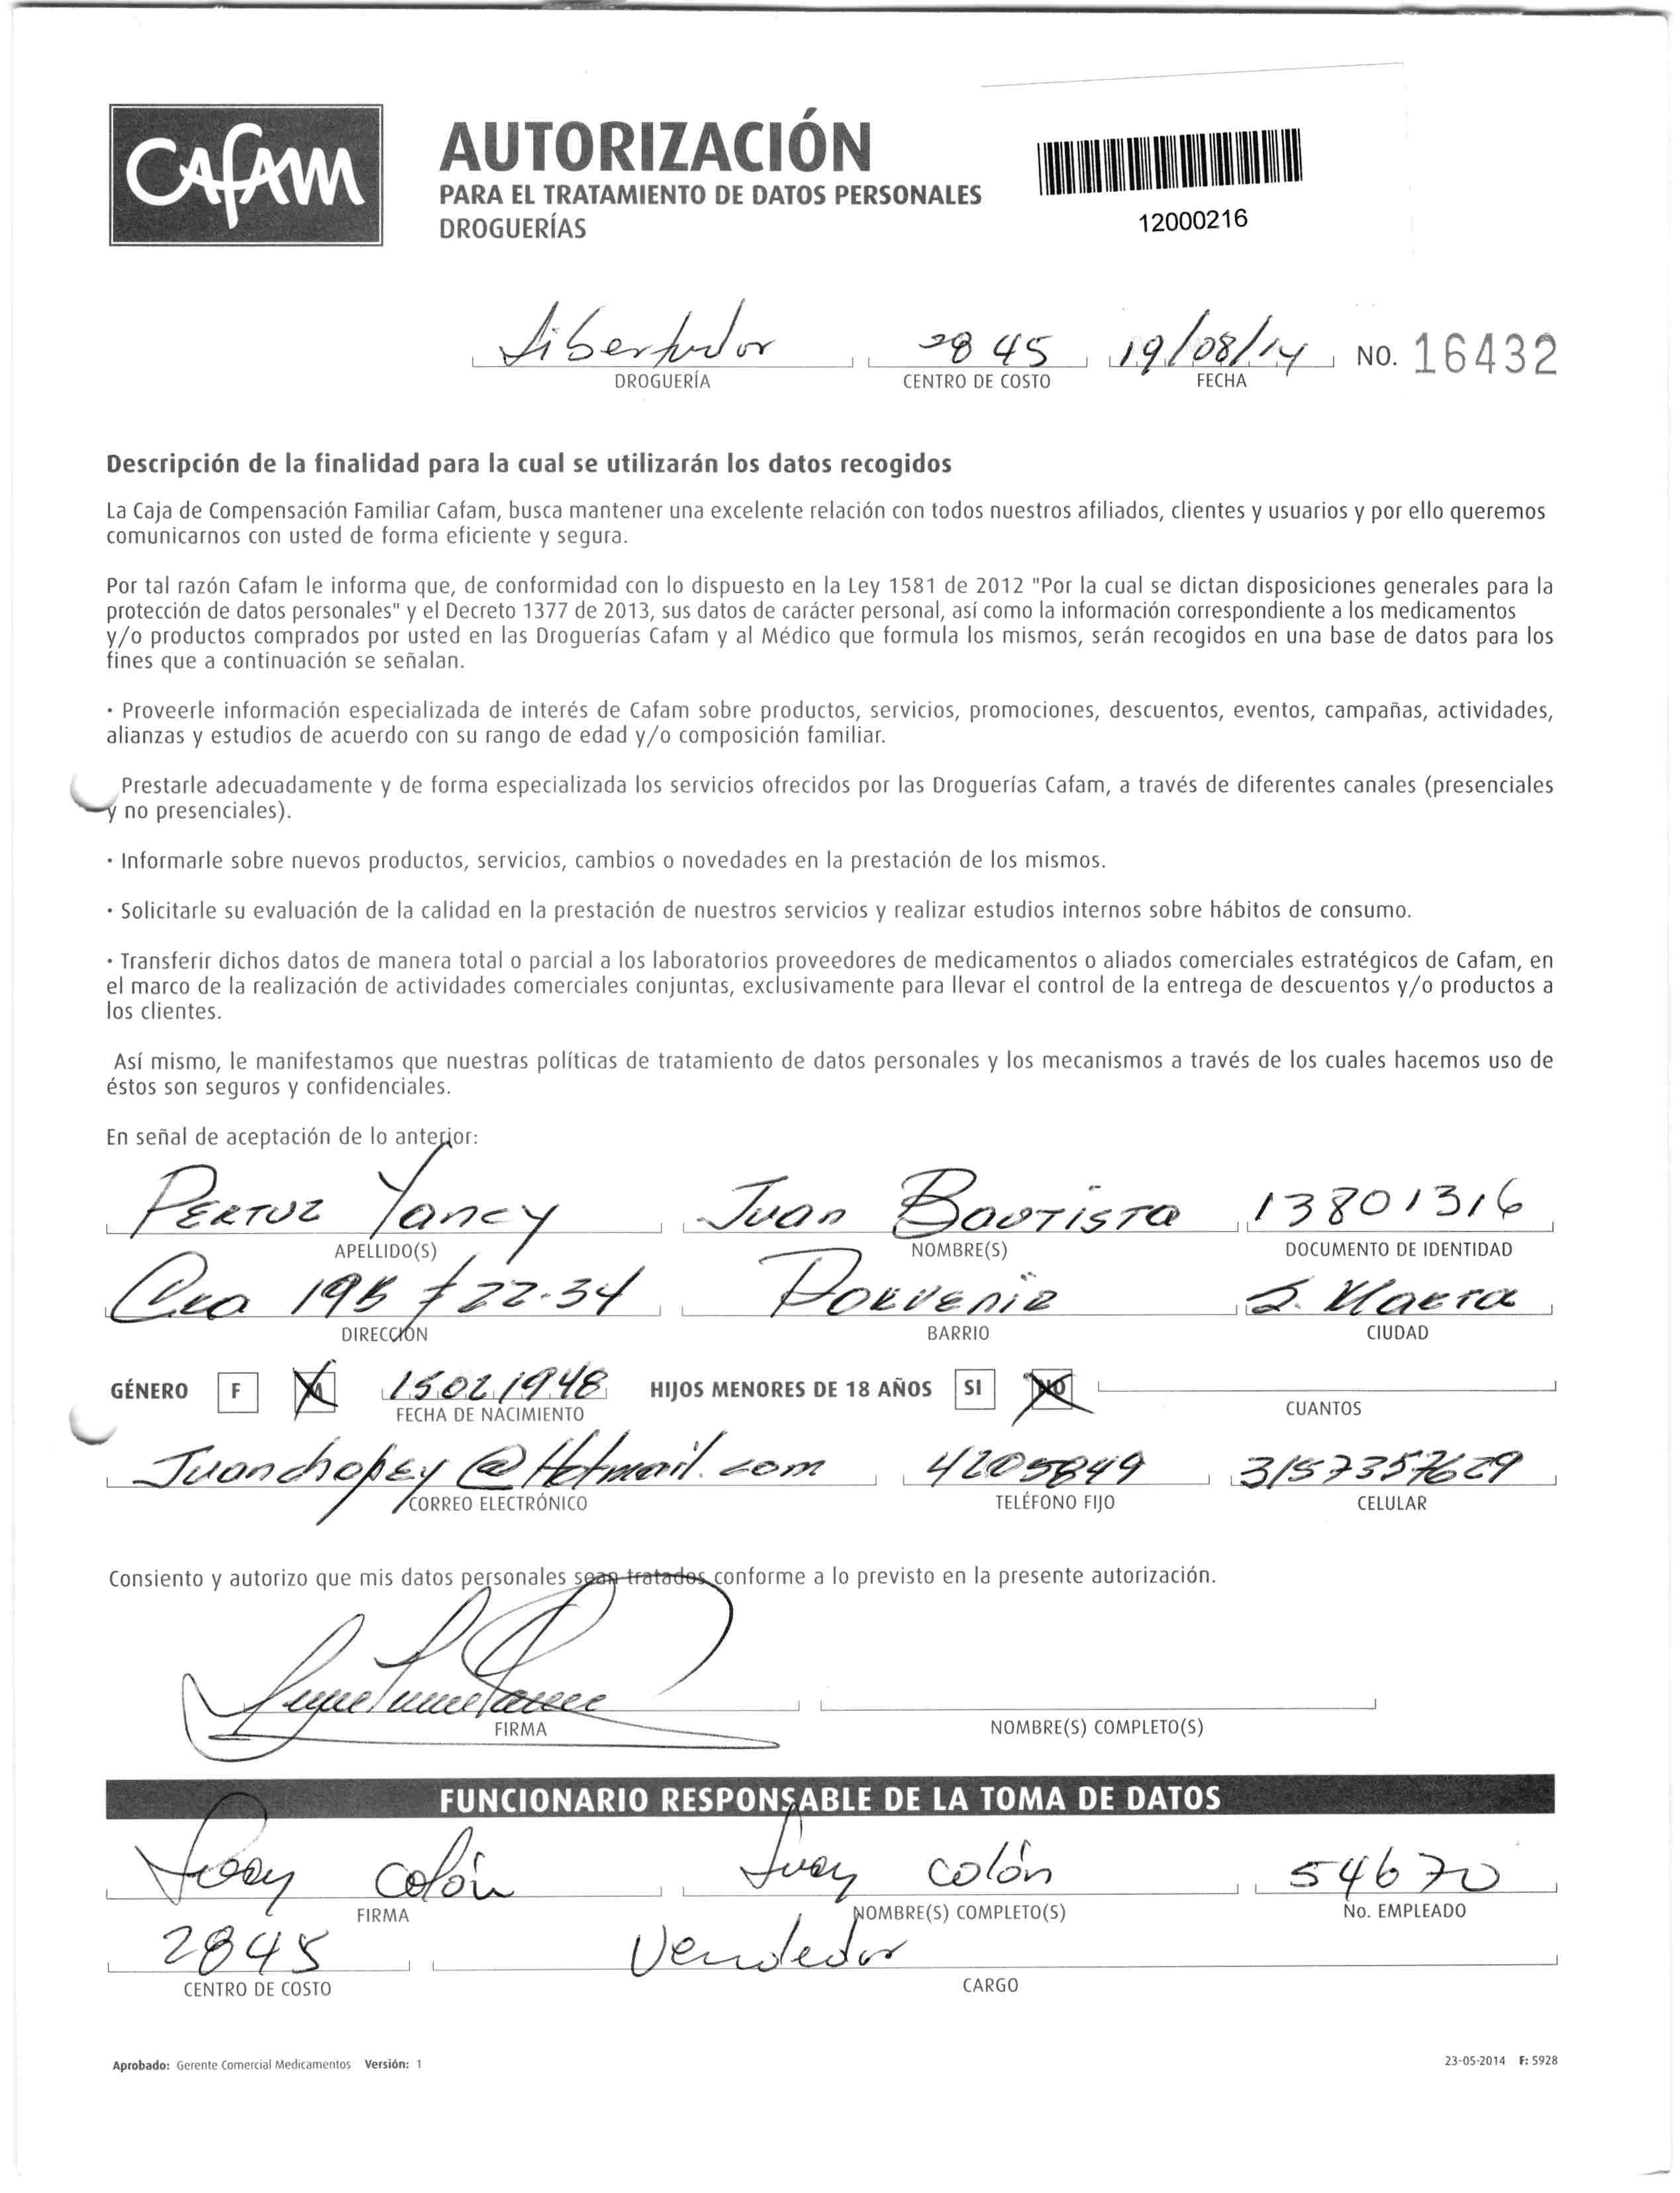 Cafam
AUTORIZACIÓN
PARA EL TRATAMIENTO DE DATOS PERSONALES
DROGUERÍAS
12000216
Libertador 2845 19/08/14 NO. 16432
DROGUERÍA CENTRO DE COSTO FECHA
Descripción de la finalidad para la cual se utilizarán los datos recogidos
La Caja de Compensación Familiar Cafam, busca mantener una excelente relación con todos nuestros afiliados, clientes y usuarios y por ello queremos
comunicarnos con usted de forma eficiente y segura.
Por tal razón Cafam le informa que, de conformidad con lo dispuesto en la Ley 1581 de 2012 "Por la cual se dictan disposiciones generales para la
protección de datos personales" y el Decreto 1377 de 2013, sus datos de carácter personal, así como la información correspondiente a los medicamentos
y/o productos comprados por usted en las Droguerías Cafam y al Médico que formula los mismos, serán recogidos en una base de datos para los
fines que a continuación se señalan.
· Proveerle información especializada de interés de Cafam sobre productos, servicios, promociones, descuentos, eventos, campañas, actividades,
alianzas y estudios de acuerdo con su rango de edad y/o composición familiar.
Prestarle adecuadamente y de forma especializada los servicios ofrecidos por las Droguerías Cafam, a través de diferentes canales (presenciales
y no presenciales).
· Informarle sobre nuevos productos, servicios, cambios o novedades en la prestación de los mismos.
· Solicitarle su evaluación de la calidad en la prestación de nuestros servicios y realizar estudios internos sobre hábitos de consumo.
· Transferir dichos datos de manera total o parcial a los laboratorios proveedores de medicamentos o aliados comerciales estratégicos de Cafam, en
el marco de la realización de actividades comerciales conjuntas, exclusivamente para llevar el control de la entrega de descuentos y/o productos a
los clientes.
Así mismo, le manifestamos que nuestras políticas de tratamiento de datos personales y los mecanismos a través de los cuales hacemos uso de
éstos son seguros y confidenciales.
En señal de aceptación de lo anterior:
PERTUZ Yancy Juan Bautista 13801316
APELLIDO(S) NOMBRE(S) DOCUMENTO DE IDENTIDAD
Cra 19B # 22-34 Porvenir S. Marta
DIRECCIÓN BARRIO CIUDAD
GÉNERO F M 15021948 HIJOS MENORES DE 18 AÑOS SI NO
FECHA DE NACIMIENTO CUANTOS
Juanchopey@Hotmail.com 4205849 3157357629
CORREO ELECTRÓNICO TELÉFONO FIJO CELULAR
Consiento y autorizo que mis datos personales sean tratados conforme a lo previsto en la presente autorización.
FIRMA NOMBRE(S) COMPLETO(S)
FUNCIONARIO RESPONSABLE DE LA TOMA DE DATOS
colón colón 54670
FIRMA NOMBRE(S) COMPLETO(S) No. EMPLEADO
2845 Vendedor
CENTRO DE COSTO CARGO
Aprobado: Gerente Comercial Medicamentos Versión: 1 23-05-2014 F: 5928